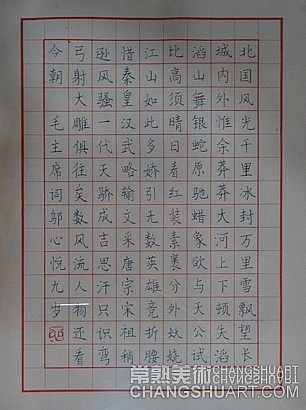 北国风光千里冰封万里雪飘望长
城内外惟余莽莽大河上下顿失滔
滔山舞银蛇原驰蜡象欲与天公试
比高须晴日看红装素裹分外妖娆
江山如此多娇引无数英雄竞折腰
惜秦皇汉武略输文采唐宗宋祖稍
逊风骚一代天骄成吉思汗只识弯
弓射大雕俱往矣数风流人物还看
今朝 毛主席词邬心悦九岁
常熟美術
CHANGSHUART.COM